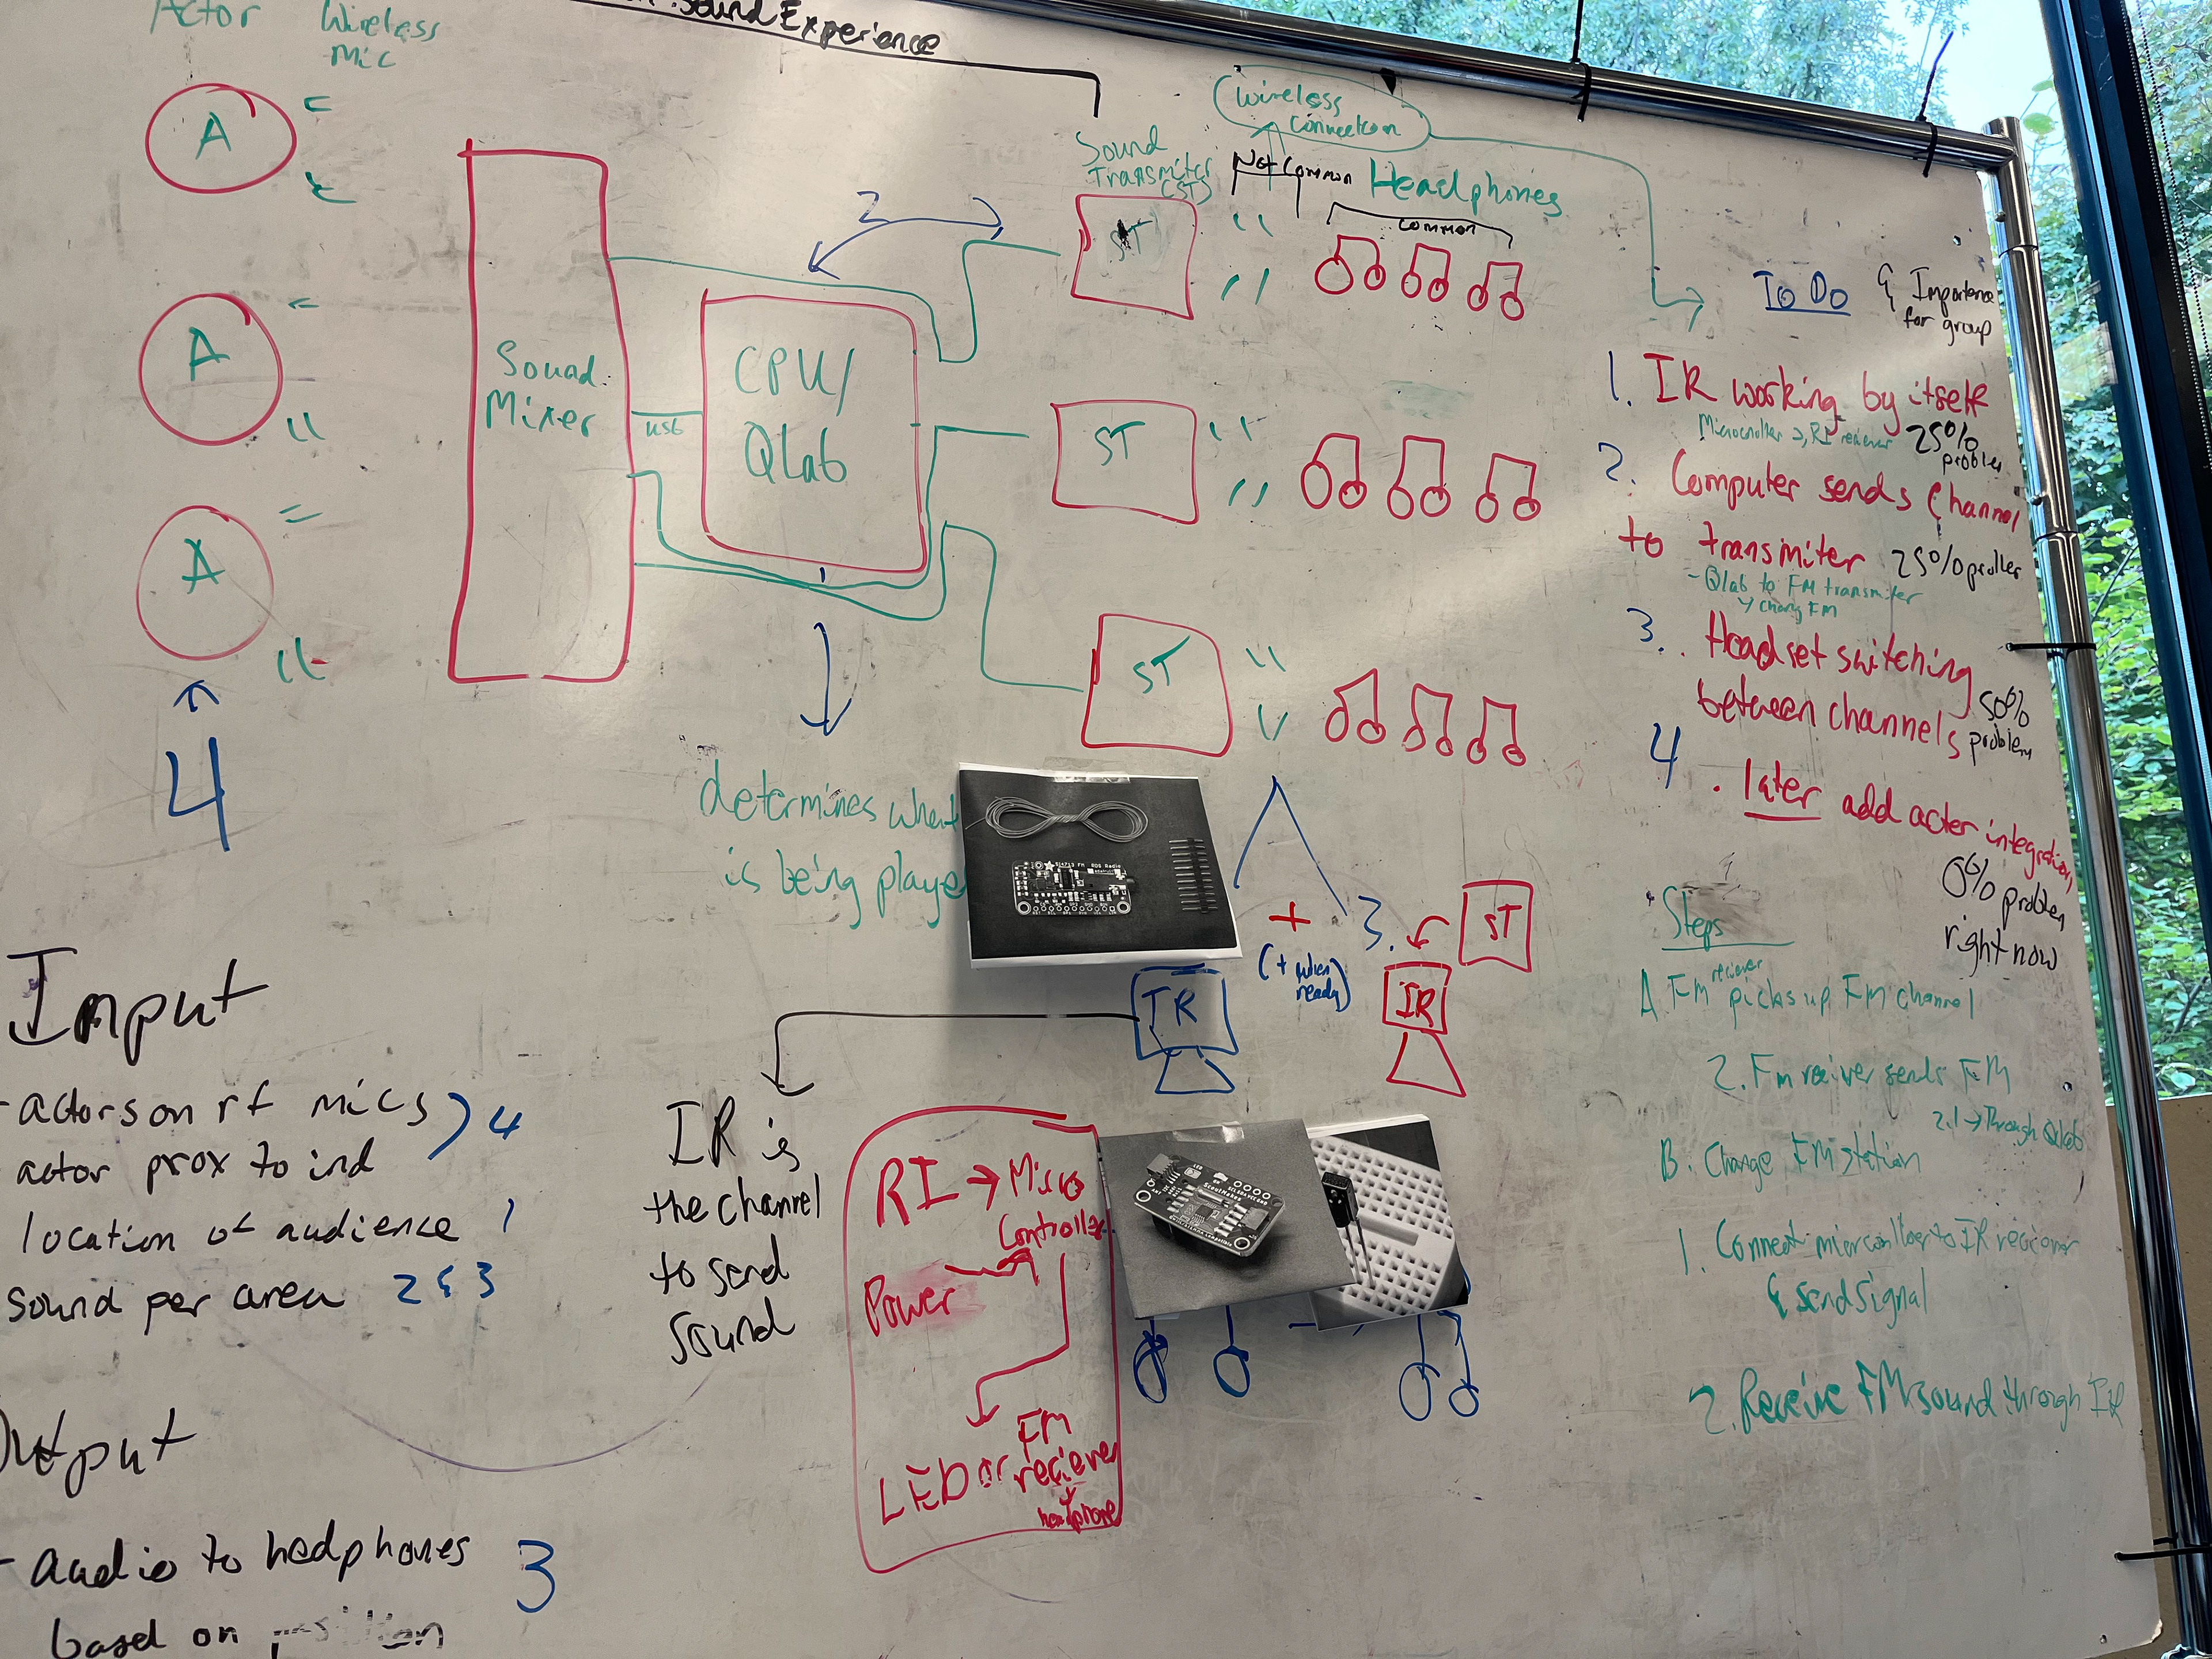 Sound Experience
Actor
Wireless
Mic
A
A
A
4
Sound
Mixer
usb
CPU/
QLab
2
determines what
is being playe
Sound
Transmiter
(ST)
ST
ST
ST
Wireless
Connection
Not Common
Headphones
Common
To Do
& Importance
for group
1. IR working by itself
25%
problem
2. Computer sends Channel
to transmiter 25% problem
- Qlab to FM transmiter
3. Headset switching
between channels
50%
problem
4. later add acter integration
0% problem
right now
Steps
A FM reciever picks up FM channel
2. Fm reciver sends FM
2.1 → Through Qlab
B. Change FM station
1. Connect
to IR reciever
& send signal
2. Receive FM sound through IR
Input
- actors on rf mics ) 4
actor prox to ind
location of audience 1
sound per area 2 & 3
Output
- audio to hedphones 3
based on position
IR is
the channel
to send
sound
IR
+
(+ when
ready)
3.
ST
IR
RI → Micro
Controller
Power
LED or FM
reciever
headphone
Si4713 FM RDS Radio
ScoutMakes